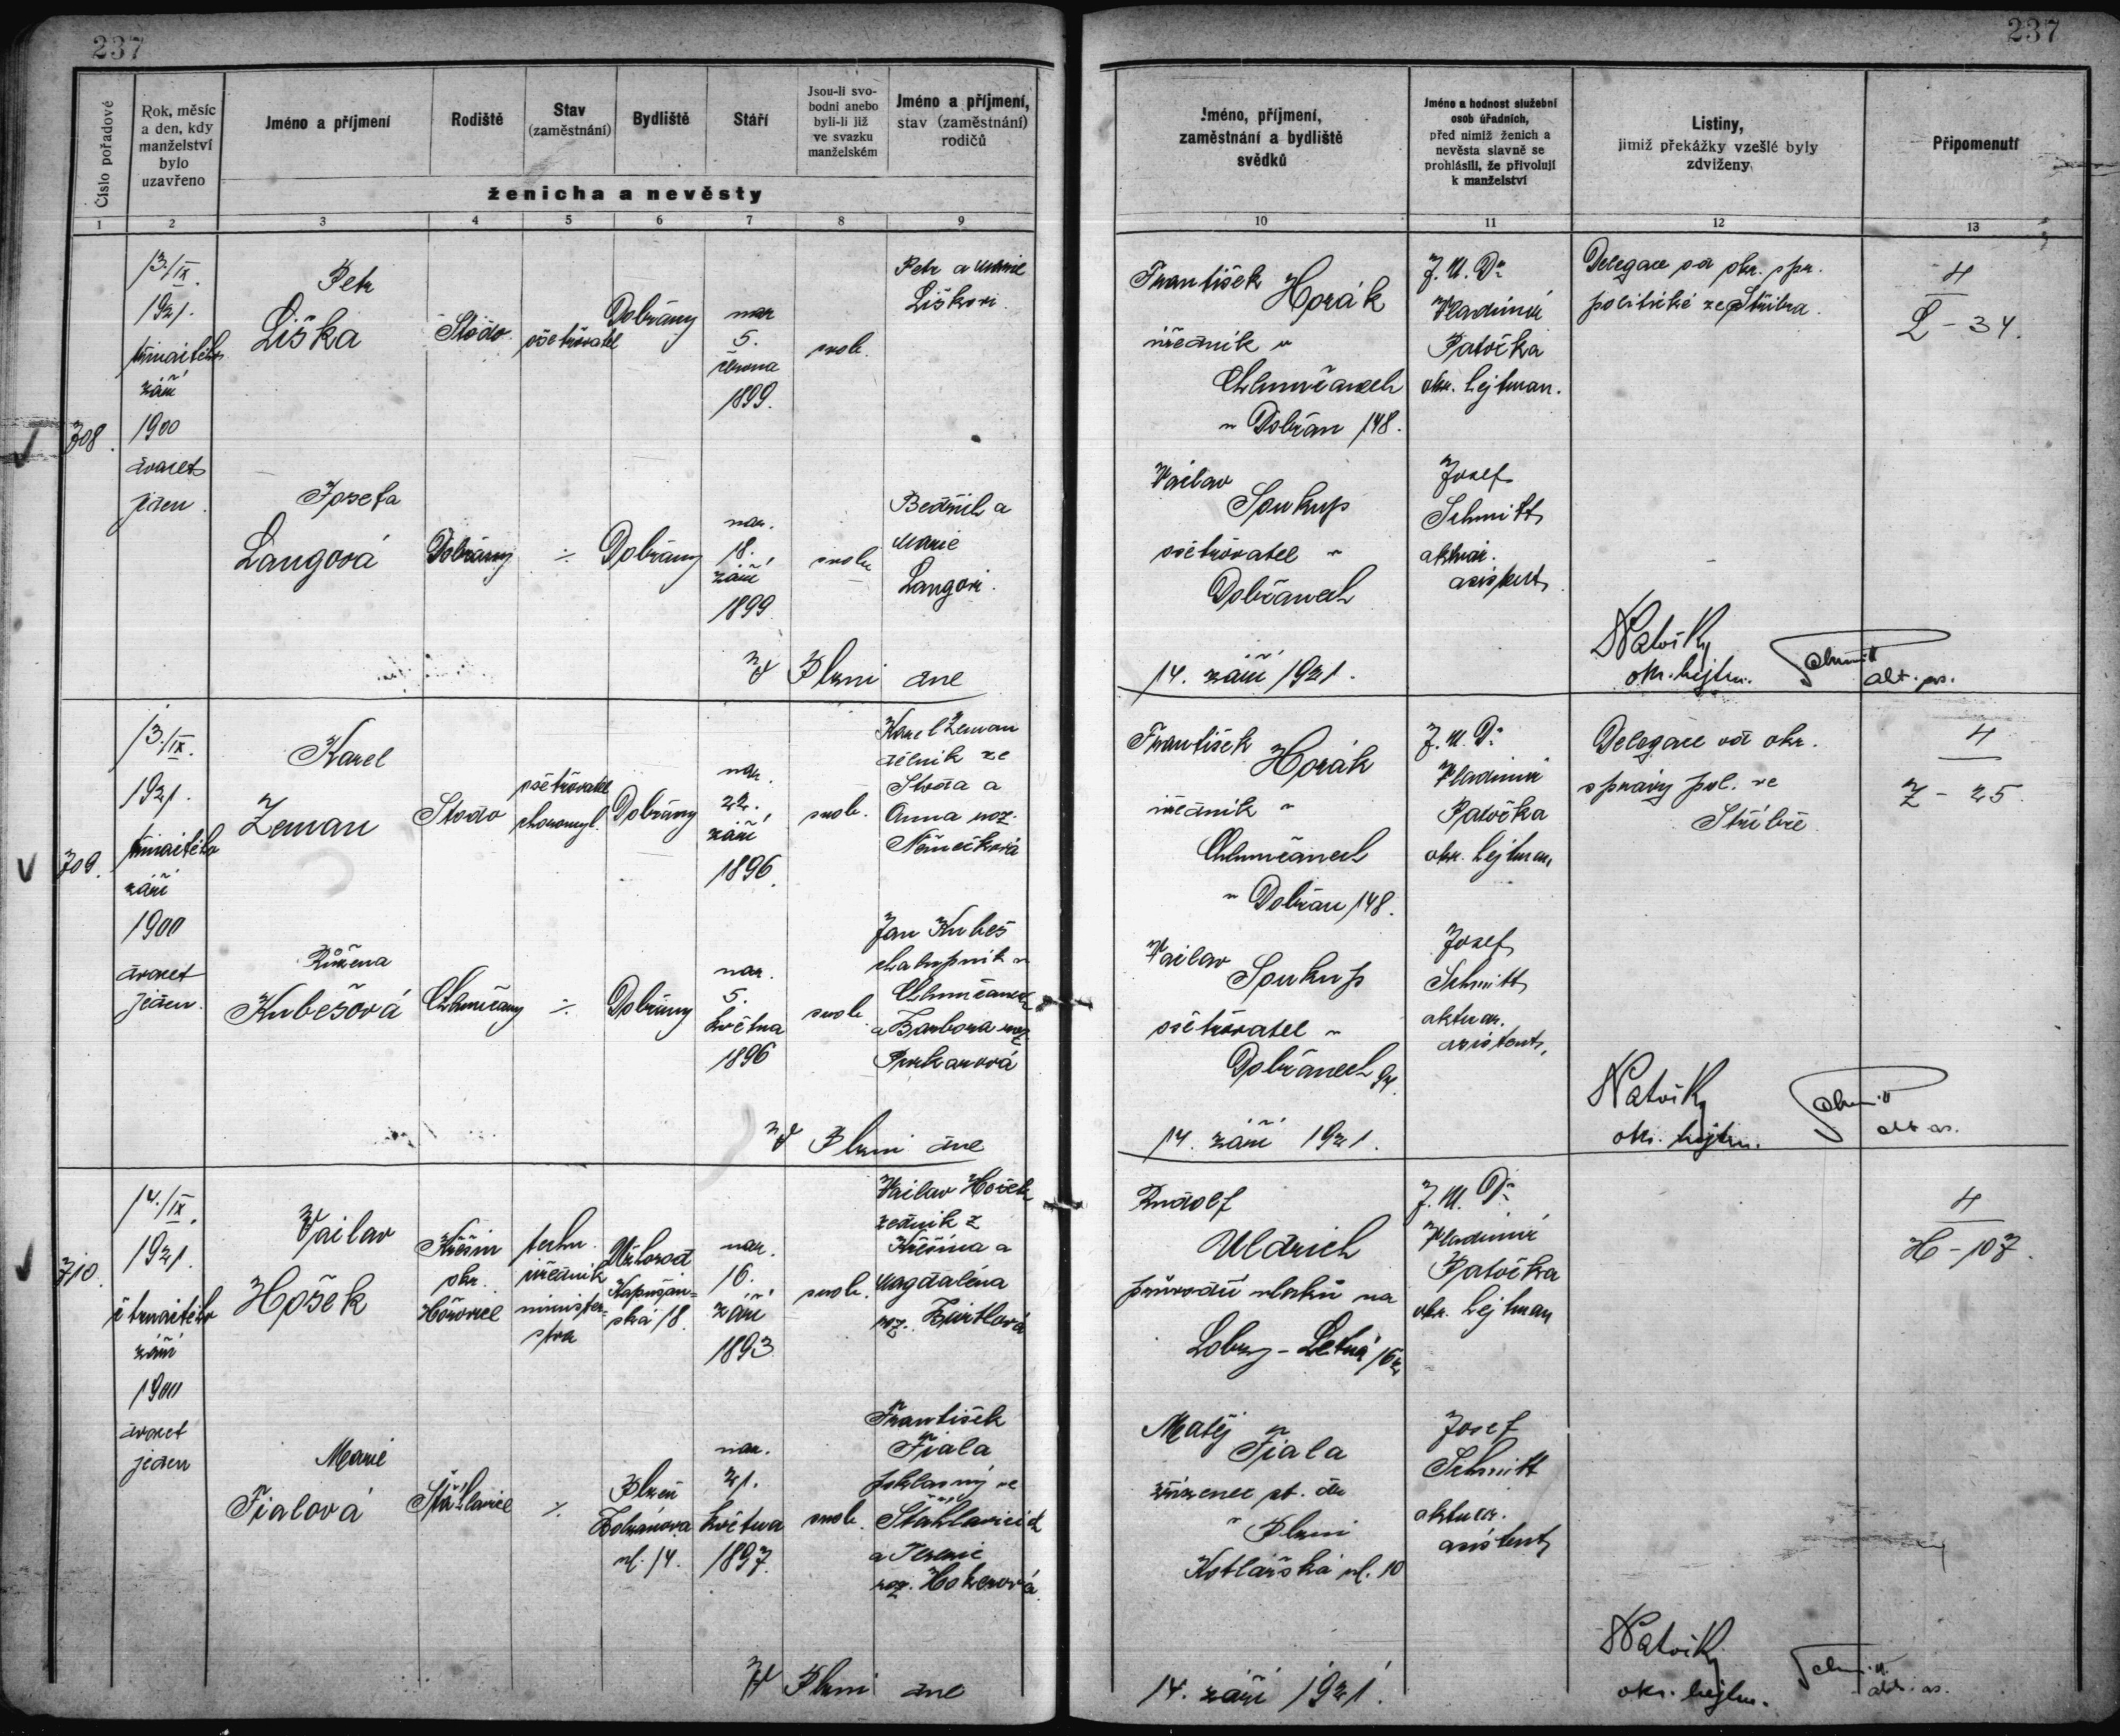 237
237
Číslo pořadové
Rok, měsíc
a den, kdy
manželství
bylo
uzavřeno
Jméno a příjmení
Rodiště
Stav
(zaměstnání)
Bydliště
Stáří
Jsou-li svo-
bodni anebo
byli-li již
ve svazku
manželském
Jméno a příjmení,
stav (zaměstnání)
rodičů
ženicha a nevěsty
Jméno, příjmení,
zaměstnání a bydliště
svědků
Jméno a hodnost služební
osob úřadních,
před nimiž ženich a
nevěsta slavně se
prohlásili, že přivolují
k manželství
Listiny,
jimiž překážky vzešlé byly
zdviženy
Připomenutí
1 2 3 4 5 6 7 8 9 10 11 12 13
708.
13./IX.
1921.
třináctého
září
1900
dvacet
jeden.
Petr
Liška
Stodo
ošetřovatel
Dobřany
nar
5.
června
1899.
svob.
Petr a Marie
Liškovi.
Josefa
Langová
Dobřany
÷
Dobřany
nar.
18.
září
1899
svob
Bedřich a
Marie
Langovi.
František
Horák
úředník v
Chlumčanech
u Dobřan 148.
Václav
Soukup
ošetřovatel v
Dobřanech
J. U. Dr
Vladimír
Patočka
okr. hejtman.
Josef
Schmitt
aktuár.
asistent
Delegace od okr. spr.
politické ze Stříbra.
4
L - 34.
V Plzni dne
14. září 1921.
okr. hejtm.
Schmitt
709.
13./IX.
1921.
třináctého
září
1900
dvacet
jeden.
Karel
Zeman
Stodo
ošetřovatel
choromysl.
Dobřany
nar.
22.
září
1896.
svob.
Karel Zeman
dělník ze
Stoda a
Anna roz.
Němečková
Růžena
Kubešová
Chlumčany
÷
Dobřany
nar.
5.
května
1896
svob
Jan Kubeš
chalupník v
Chlumčanech
a Barbora roz.
František
Horák
úředník v
Chlumčanech
u Dobřan 148.
Václav
Soukup
ošetřovatel v
Dobřanech
J. U. Dr
Vladimír
Patočka
okr. hejtman
Josef
Schmitt
aktuar.
asistent,
Delegace od okr.
správy pol. ve
Stříbře
4
Z - 25.
V Plzni dne
14. září 1921.
okr. hejtm.
Schmitt
710.
14./IX.
1921.
čtrnáctého
září
1900
dvacet
jeden
Václav
Hošek
Křešín
okr.
Hořovice
techn.
úředník
minister-
stva
Užhorod
Kapušan-
ská 18.
nar.
16.
září
1893
svob.
Václav Hošek
zedník z
Křešína a
Magdaléna
roz.
Marie
Fialová
Šťáhlavice
÷
Plzeň
nl. 14.
nar.
21.
května
1897.
svob.
František
Fiala
ve
Šťáhlavicích
a Terezie
roz.
Rudolf
Uldrich
průvodčí vlaků na
Lobzy - Letná
Matěj
Fiala
zřízenec st. dr
v Plzni
Kotlářská ul. 10
J. U. Dr
Vladimír
Patočka
okr. hejtman
Josef
Schmitt
aktuar.
asistent
4
H - 107.
V Plzni dne
14. září 1921.
okr. hejtm.
Schmitt